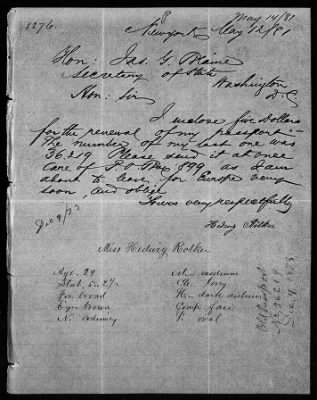 1276.
May 14/81
Newport May 12/81
Hon: Jas. G. Blaine
Secretary of State
Washington
D.C.
Hon: Sir
I inclose five Dollars
for the renewal of my passport:-
The number of my last one was
36.219 Please send it at once
Care of P.O. Box 899 as I am
about to leave for Europe very
soon, and oblige
Yours very respectfully
Hedwig Rolker
Miss Hedwig Rolker
Age. 29
Stat. 5. 2 1/2
For. broad
Eyes brown
N. ordinary
M. medium
Ch. long
H. dark auburn
Comp. fair
F. oval
Old Passport
No 36219
Dec. 9, 1873